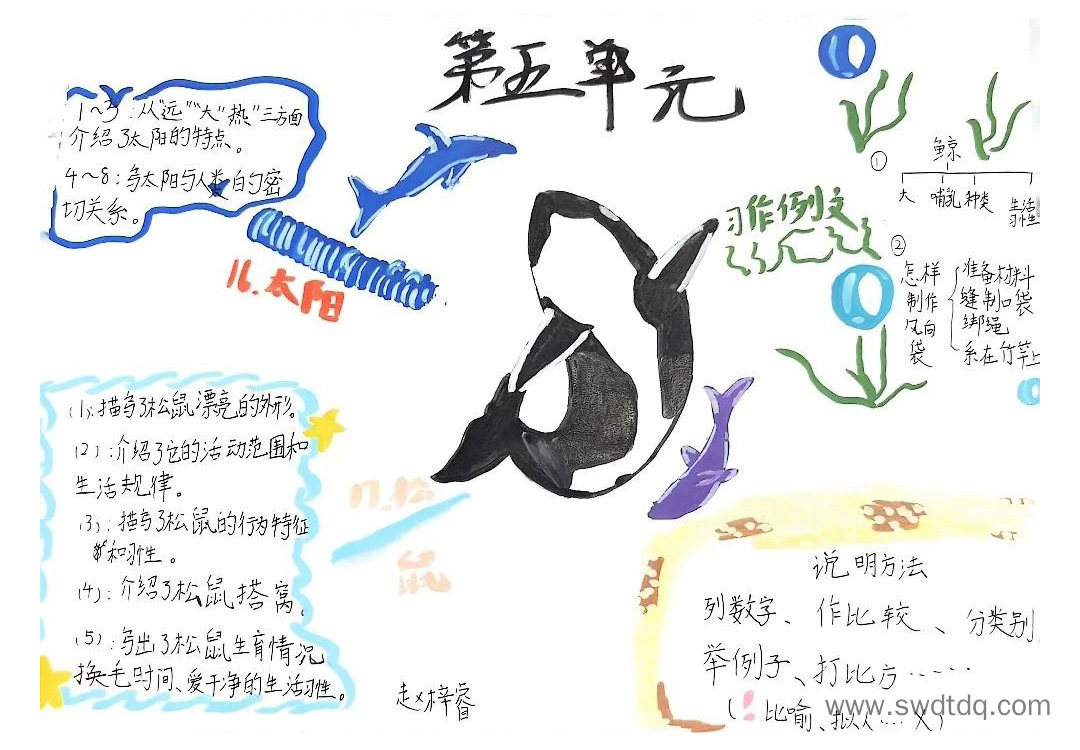 第五单元
1~3:从"远""大""热"三方面
介绍了太阳的特点。
4~8:写太阳与人类的密
切关系。
16.太阳
习作例文
①
鲸
大 哺乳 种类 生活
习性
②
怎样
制作
风向
袋
准备材料
缝制口袋
绑绳
系在竹竿上
(1):描写了松鼠漂亮的外形。
(2):介绍了它的活动范围和
生活规律。
(3):描写了松鼠的行为特征
和习性。
(4):介绍了松鼠搭窝。
(5):写出了松鼠生育情况
换毛时间、爱干净的生活习性。
17.松
鼠
说明方法
列数字、作比较、分类别
举例子、打比方……
(! 比喻、拟人… X)
赵梓睿
www.swdtdq.com